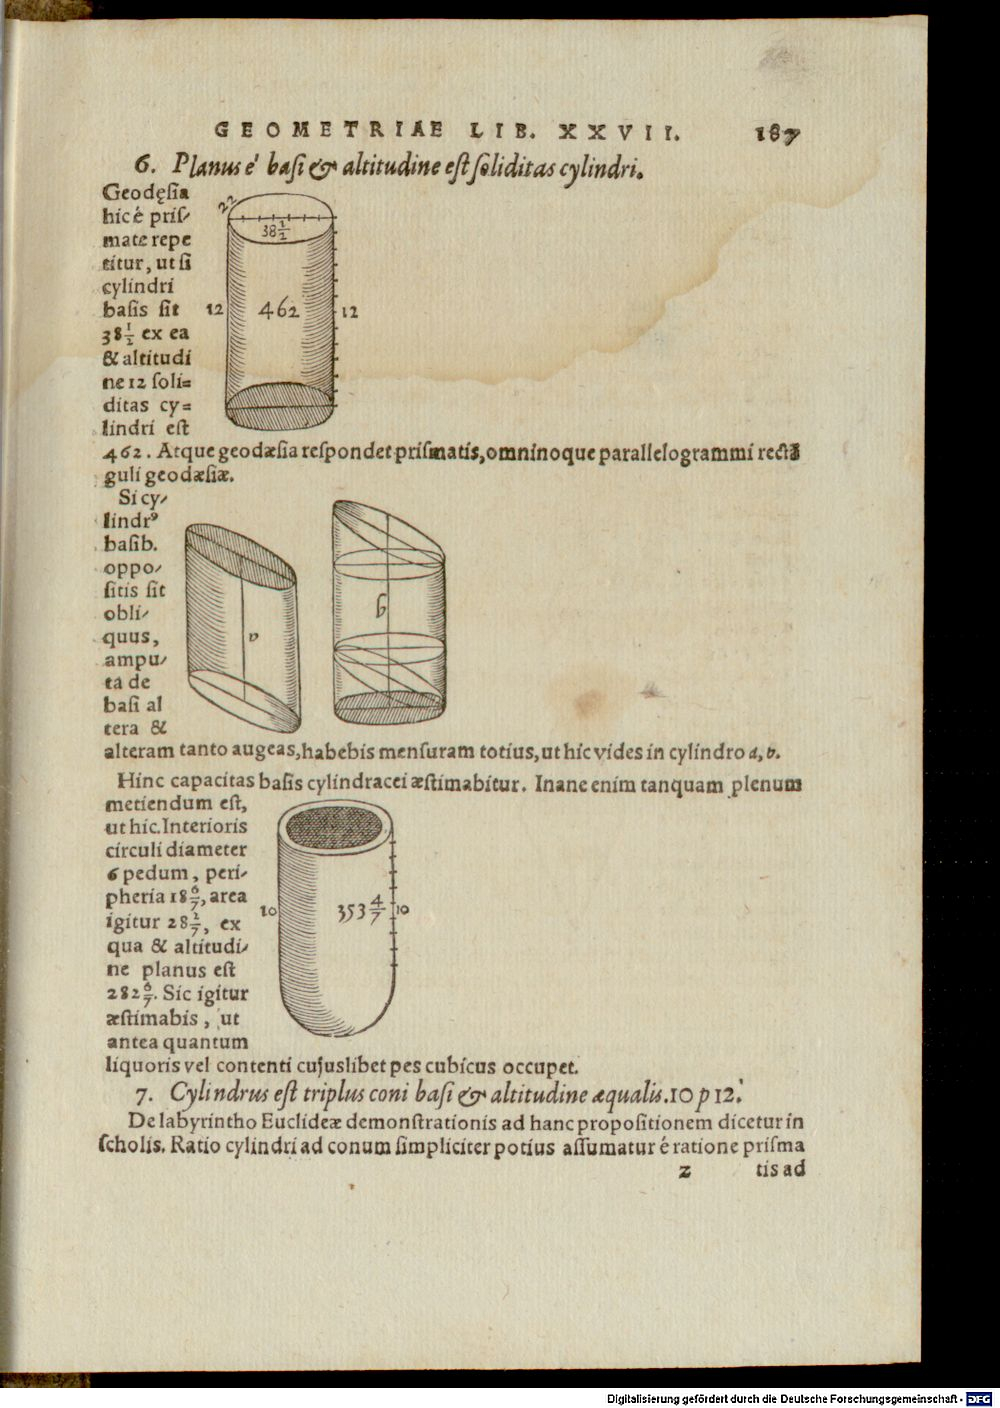 GEOMETRIAE LIB. XXVII. 187
6. Planus è basi & altitudine est soliditas cylindri.
Geodęsia
hic é pris-
mate repe
titur, ut si
cylindri
basis sit
38 1/2 ex ea
& altitudi
ne 12 soli=
ditas cy=
lindri est
22
38 1/2
12 462 12
462. Atque geodæsia respondet prismatis, omninoque parallelogrammi rectã
guli geodæsiæ.
Si cy-
lindrꝰ
basib.
oppo-
sitis sit
obli-
quus,
ampu-
ta de
basi al
tera &
v
b
alteram tanto augeas, habebis mensuram totius, ut hic vides in cylindro a, v.
Hinc capacitas basis cylindracei æstimabitur. Inane enim tanquam plenum
metiendum est,
ut hic. Interioris
circuli diameter
6 pedum, peri-
pheria 18 6/7, area
igitur 28 2/7, ex
qua & altitudi-
ne planus est
282 6/7. Sic igitur
æstimabis, ut
antea quantum
10 353 4/7 10
liquoris vel contenti cujuslibet pes cubicus occupet.
7. Cylindrus est triplus coni basi & altitudine æqualis. 10 p 12.
De labyrintho Euclideæ demonstrationis ad hanc propositionem dicetur in
scholis. Ratio cylindri ad conum simpliciter potius assumatur é ratione prisma
z tis ad
Digitalisierung gefördert durch die Deutsche Forschungsgemeinschaft - DFG